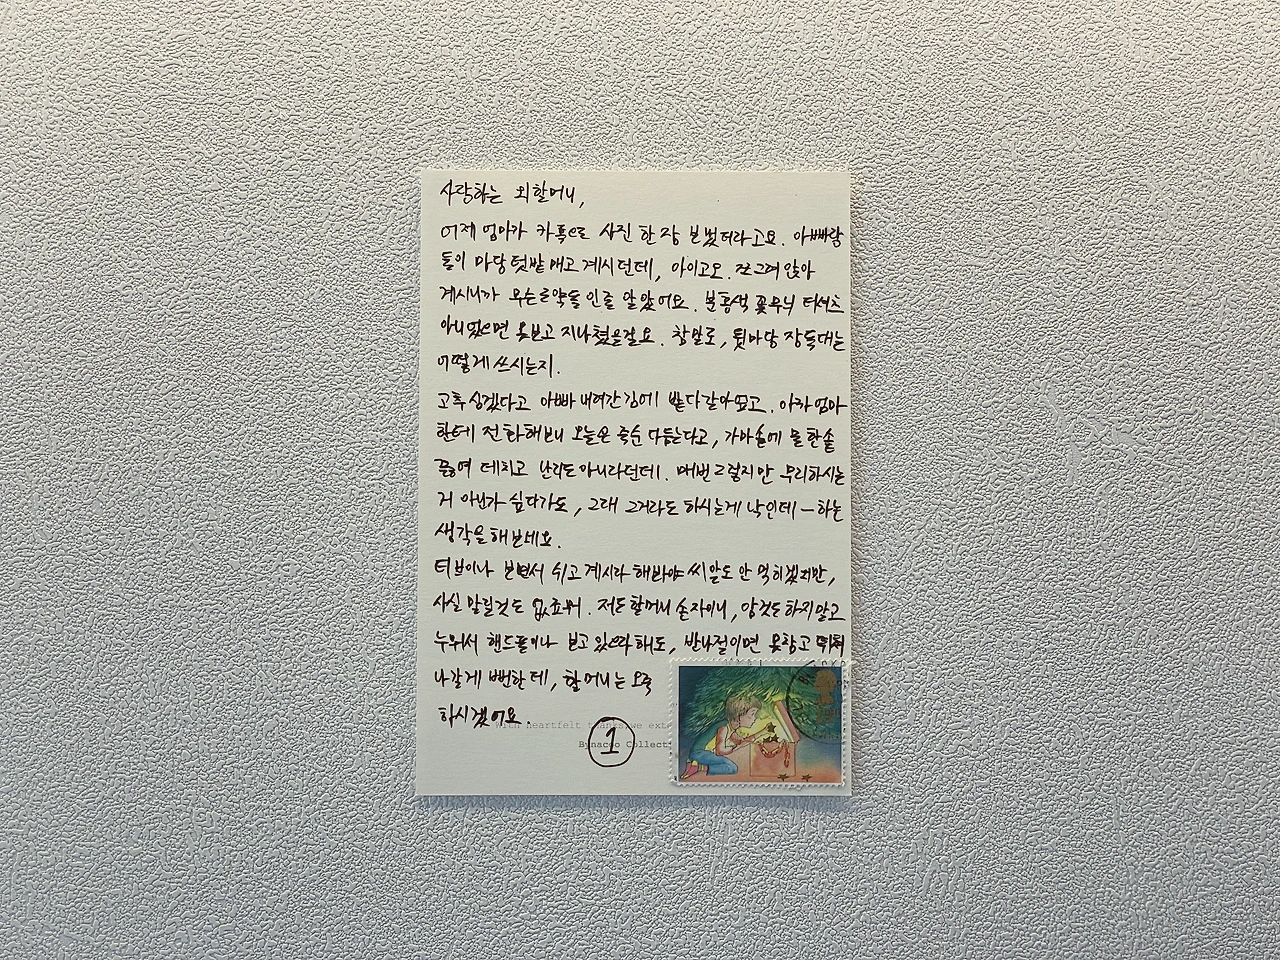 사랑하는 외할머니,
어제 엄마가 카톡으로 사진 한 장 보냈더라고요. 아빠랑
둘이 마당 텃밭 매고 계시던데, 아이고오. 쪼그려 앉아
계시니까 무슨 요약돌인줄 알았어요. 분홍색 꽃무늬 티셔츠
아니었으면 못보고 지나쳤을걸요. 참말로, 뒷마당 장독대는
어떻게 쓰시는지.
고추 심겠다고 아빠 내려간김에 밭 다 갈아엎고. 아까 엄마
한테 전화해보니 오늘은 죽순 다듬는다고, 가마솥에 물 한솥
끓여 데치고 난리도 아니라던데. 매번 그렇지만 무리하시는
거 아닌가 싶다가도, 그래 그거라도 하시는게 낙인데 — 하는
생각을 해보네요.
티브이나 보면서 쉬고 계시라 해봐야 씨알도 안 먹히겠지만,
사실 말릴것도 없죠뭐. 저도 할머니 손자이니, 암것도 하지말고
누워서 핸드폰이나 보고 있으라 해도, 반나절이면 못참고 뛰쳐
나갈게 뻔한데, 할머니는 오죽
하시겠어요.
with heartfelt
Collect
1